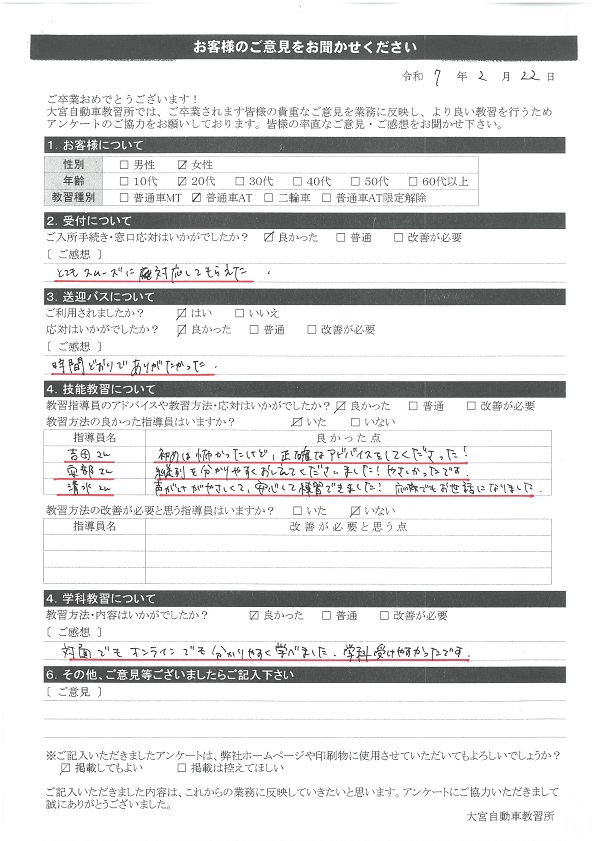 お客様のご意見をお聞かせください
令和 7 年 2 月 22 日
ご卒業おめでとうございます！
大宮自動車教習所では、ご卒業されます皆様の貴重なご意見を業務に反映し、より良い教習を行うため
アンケートのご協力をお願いしております。皆様の率直なご意見・ご感想をお聞かせ下さい。
1. お客様について
性別 □ 男性 ☑ 女性
年齢 □ 10代 ☑ 20代 □ 30代 □ 40代 □ 50代 □ 60代以上
教習種別 □ 普通車MT ☑ 普通車AT □ 二輪車 □ 普通車AT限定解除
2. 受付について
ご入所手続き・窓口応対はいかがでしたか？ ☑ 良かった □ 普通 □ 改善が必要
［ ご感想 ］
とてもスムーズに対応してもらえた.
3. 送迎バスについて
ご利用されましたか？ ☑ はい □ いいえ
応対はいかがでしたか？ ☑ 良かった □ 普通 □ 改善が必要
［ ご感想 ］
時間どおりでありがたかった.
4. 技能教習について
教習指導員のアドバイスや教習方法・応対はいかがでしたか？ ☑ 良かった □ 普通 □ 改善が必要
教習方法の良かった指導員はいますか？ ☑ いた □ いない
指導員名 良かった点
吉田さん 初めは怖かったけど, 正確なアドバイスをしてくださった!
安部さん 縦列を分かりやすくおしえてくださいました! やさしかったです.
清水さん 声がけがやさしくて, 安心して練習できました! 応急でもお世話になりました.
教習方法の改善が必要と思う指導員はいますか？ □ いた ☑ いない
指導員名 改善が必要と思う点
4. 学科教習について
教習方法・内容はいかがでしたか？ ☑ 良かった □ 普通 □ 改善が必要
［ ご感想 ］
対面でもオンラインでも分かりやすく学べました. 学科受けやすかったです.
6. その他、ご意見等ございましたらご記入下さい
［ ご意見 ］
※ご記入いただきましたアンケートは、弊社ホームページや印刷物に使用させていただいてもよろしいでしょうか？
☑ 掲載してもよい □ 掲載は控えてほしい
ご記入いただきました内容は、これからの業務に反映していきたいと思います。アンケートにご協力いただきまして
誠にありがとうございました。
大宮自動車教習所